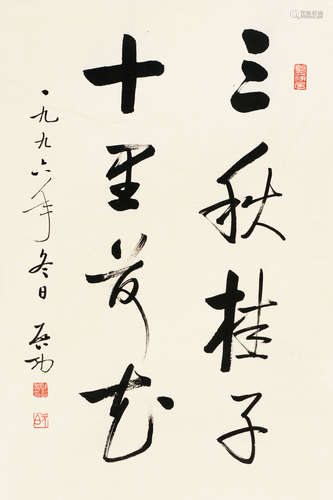 三秋桂子
十里荷花
一九九六年冬日 启功